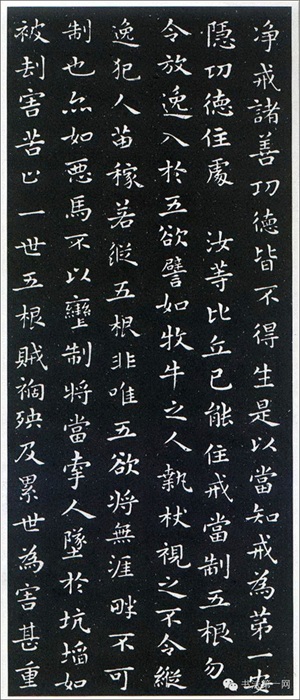 净戒諸善功德皆不得生是以當知戒為第一安
隱功德住處　汝等比丘已能住戒當制五根勿
令放逸入於五欲譬如牧牛之人執杖視之不令縱
逸犯人苗稼若縱五根非唯五欲將無涯畔不可
制也亦如惡馬不以轡制將當牽人墜於坑埳如
被刧害苦止一世五根賊禍殃及累世為害甚重
书法第一网